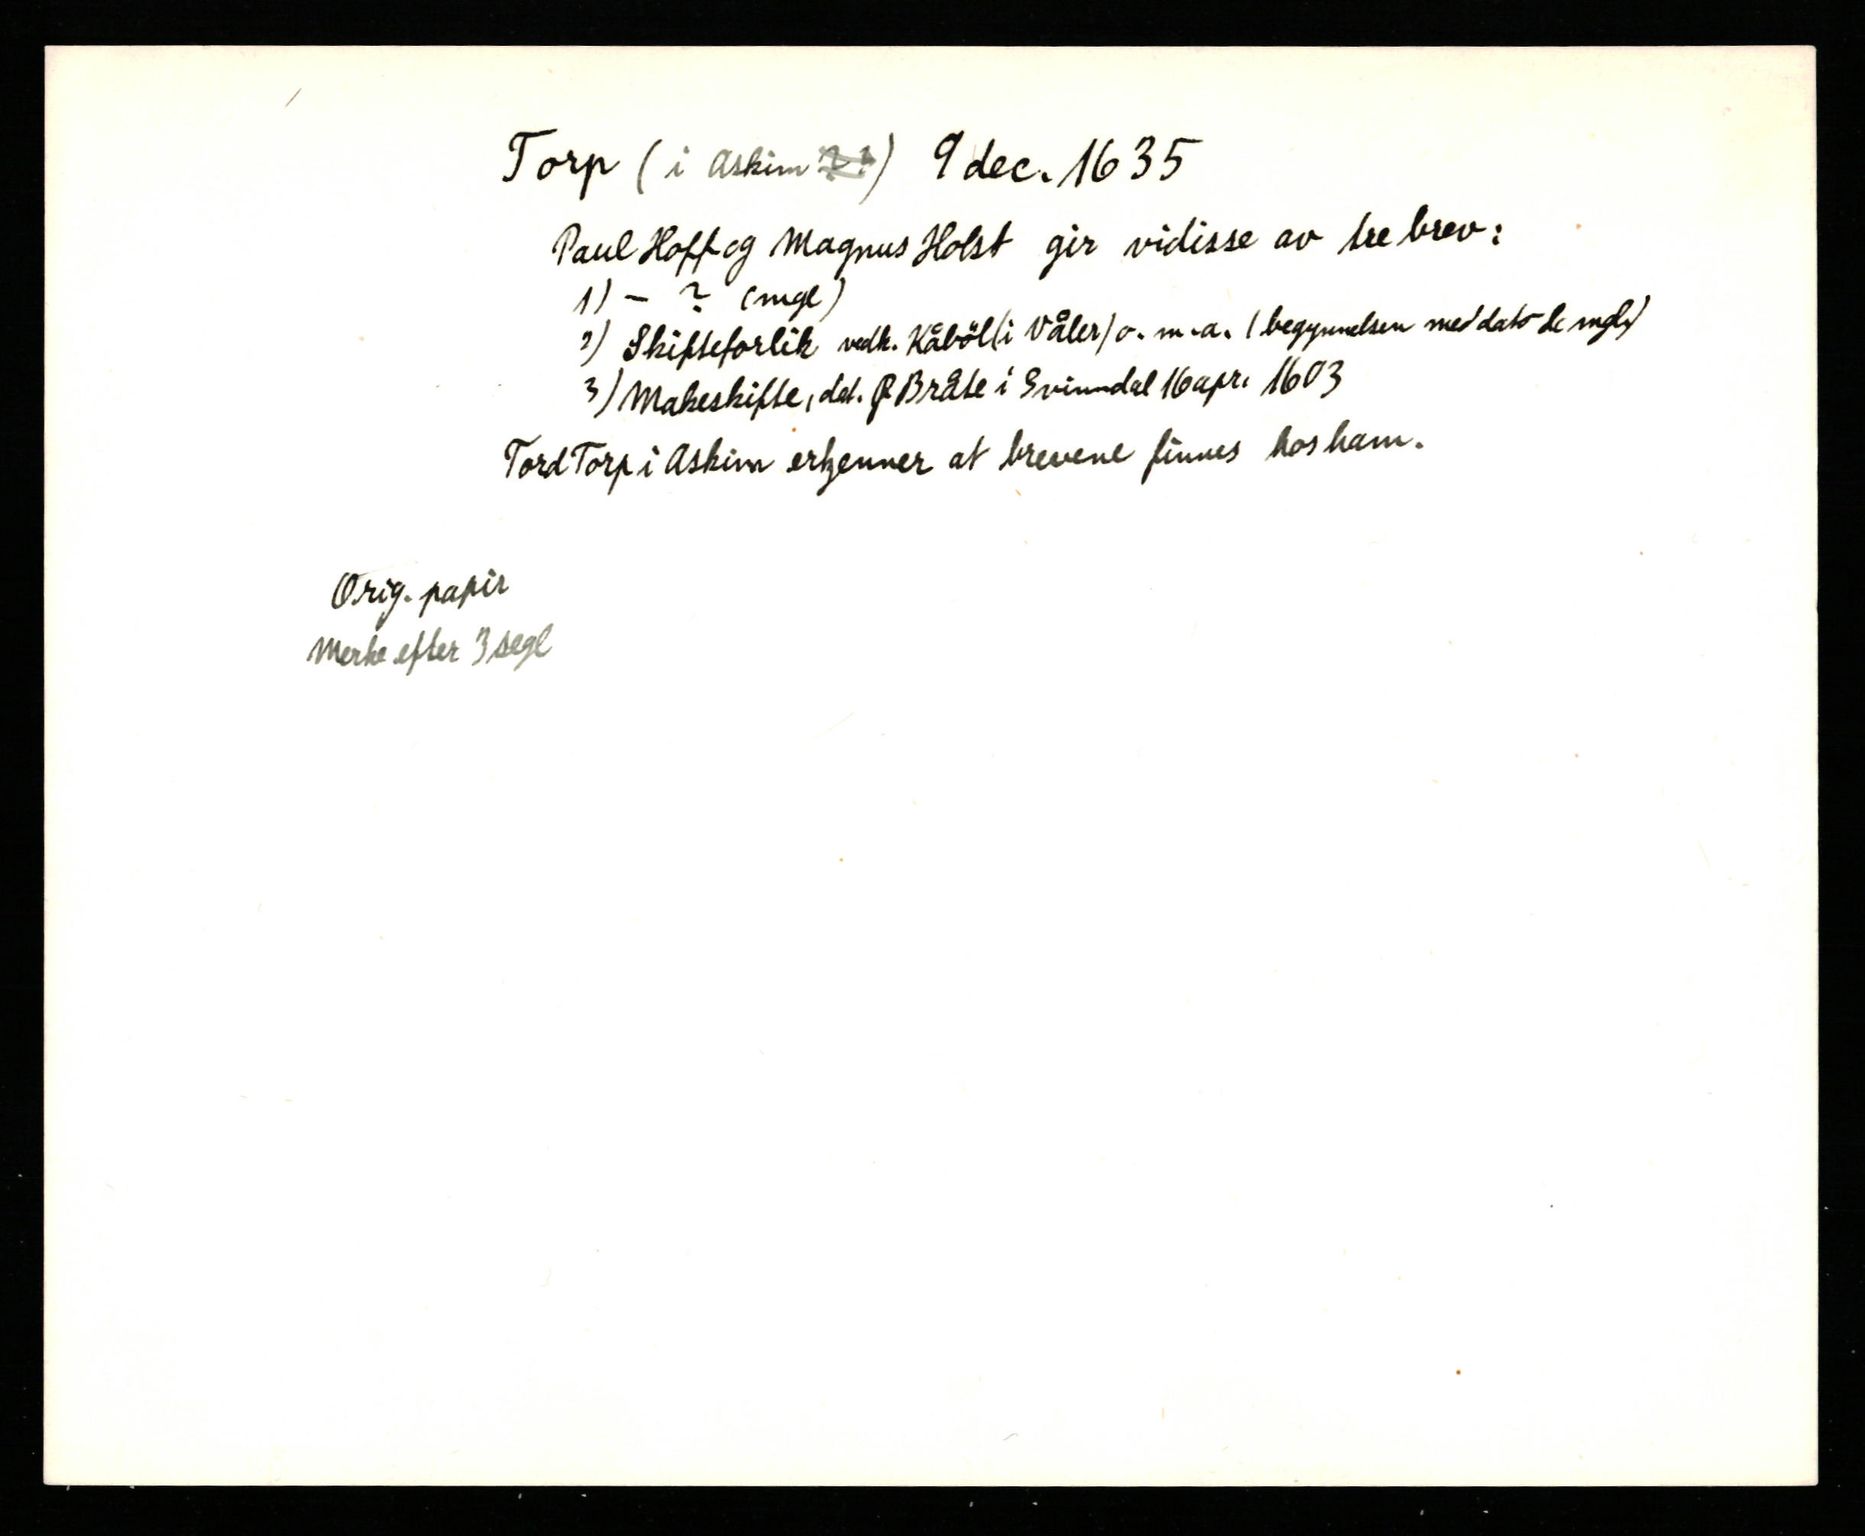 Torp (i Askim ??) 9 dec. 1635
Paul Hoff og Magnus Holst gir vidisse av tre brev:
1) – ? (mgl)
2) Skifteforlik vedk. Kåböl (i Våler) o. m. a. (begynnelsen med dato &c mgl.)
3) Makeskifte, dat. Bråte i Svinndal 16 apr. 1603
Tord Torp i Askim erkjenner at brevene finnes hos ham.
Orig. papir
Merke efter 3 segl